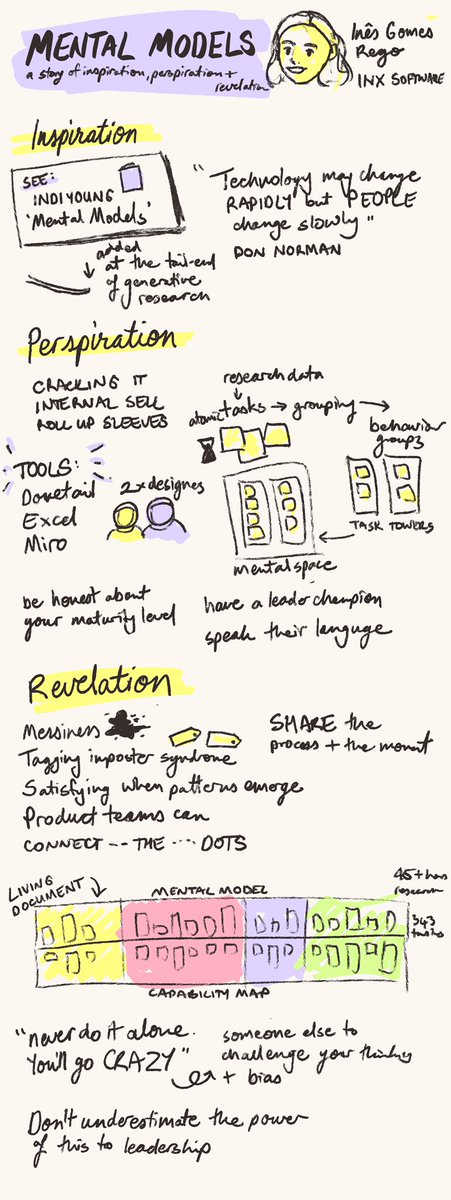 MENTAL MODELS
a story of inspiration, perspiration +
revelation
Inês Gomes
Rego
INX SOFTWARE
Inspiration
SEE:
INDI YOUNG
'Mental Models'
added
at the tail-end
of generative
research
"Technology may change
RAPIDLY but PEOPLE
change slowly"
DON NORMAN
Perspiration
CRACKING IT
INTERNAL SELL
ROLL UP SLEEVES
research data
atomic tasks → grouping →
behavior
groups
TOOLS:
Dovetail
Excel
Miro
2x designes
TASK TOWERS
mental space
be honest about
your maturity level
have a leader champion
speak their languge
Revelation
Messiness
Tagging imposter syndrome
Satisfying when patterns emerge
Product teams can
CONNECT -- THE ---- DOTS
SHARE the
process + the
LIVING
DOCUMENT
MENTAL MODEL
45+ hrs
research
343
tasks
CAPABILITY MAP
"never do it alone.
You'll go CRAZY"
someone else to
challenge your thinking
+ bias
Don't underestimate the power
of this to leadership